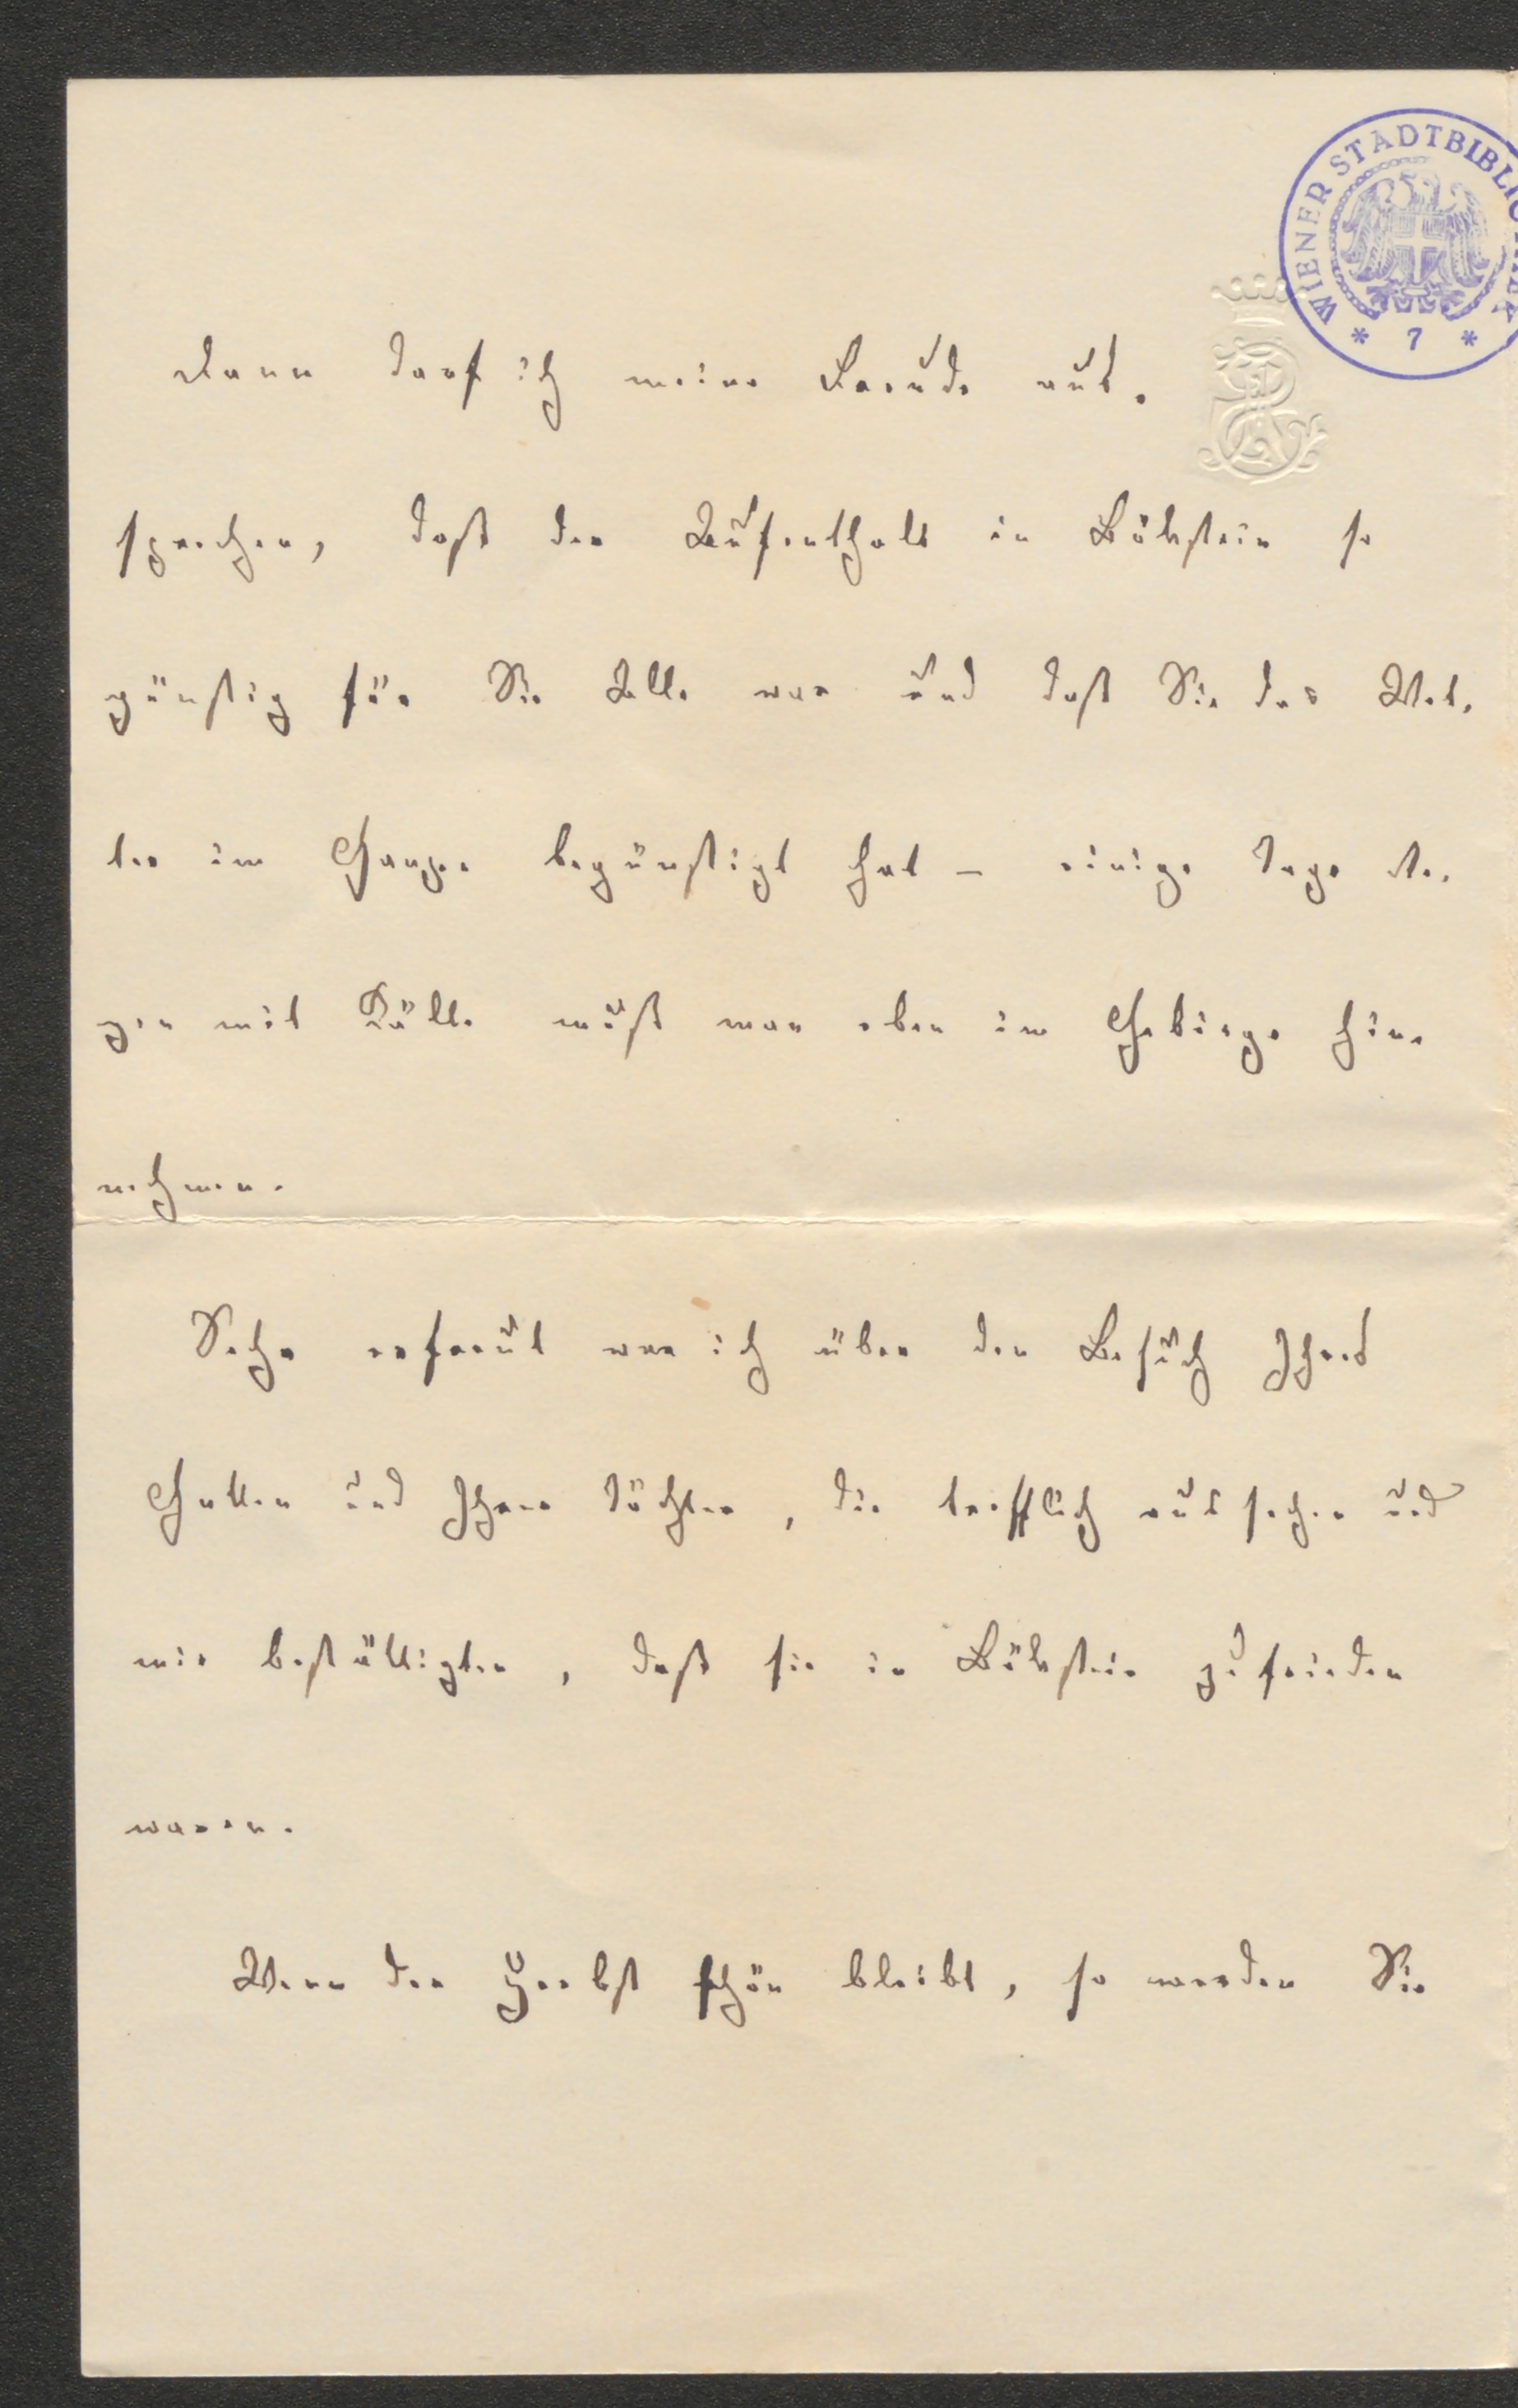 WIENER STADTBIBLIOTHEK
* 7 *
Dann darf ich meine Freude aus-
sprechen, daß der Aufenthalt in Bülstein so
günstig für Sie Alle war und daß Sie das Wet-
ter im Ganzen begünstigt hat – einige Tage Re-
gen mit Kälte muß man eben im Gebirge hin-
nehmen.
Sehr erfreut war ich über den Besuch Ihres
Gatten und Ihrer Töchter, die trefflich aussehen und
mir bestättigten, daß sie in Bülstein zufrieden
waren.
Wenn der Herbst schön bleibt, so werden Sie